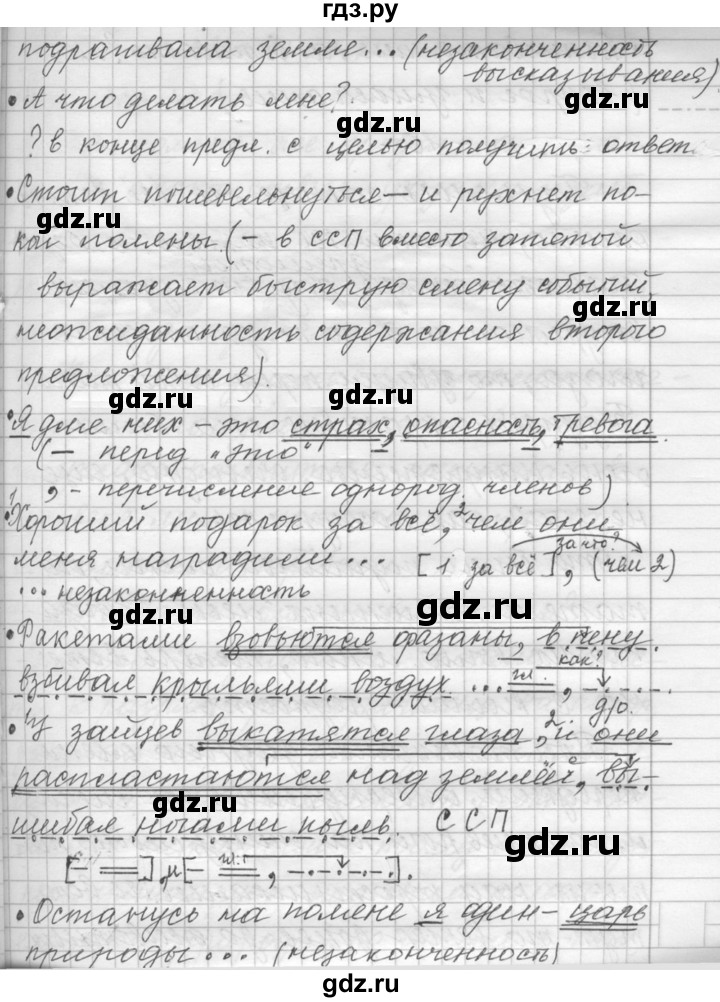 гдз.ру
подрагивала земля... (незаконченность
высказывания)
• А что делать мне?
gdz.ru
gdz.ru
? в конце предл. с целью получить ответ
• Стоит пошевельнуться – и рухнет по-
gdz.ru
gdz.ru
кой поляны. (– в ССП вместо запятой
выражает быструю смену событий,
gdz.ru
неожиданность содержания второго
предложения).
gdz.ru
gdz.ru
• Я для них – это страх, опасность, тревога.
(– перед "это"
gdz.ru
, – перечисление однород. членов)
1 Хороший подарок за всё, 2 чем они
gdz.ru
меня наградили... [1 за всё], (чем 2)
за что?
... незаконченность
gdz.ru
gdz.ru
• Ракетами взовьются фазаны, в пену
как?
взбивая крыльями воздух. ... гл.
gdz.ru
д/о.
• У зайцев выкатятся глаза, 2 и они
gdz.ru
распластаются над землёй, вы-
gdz.ru
шибая ногами пыль. ССП
gdz.ru
[– =], и [– гл. =, –.–.–].
• Останусь на поляне я один – царь
gdz.ru
природы... (незаконченность)
gdz.ru